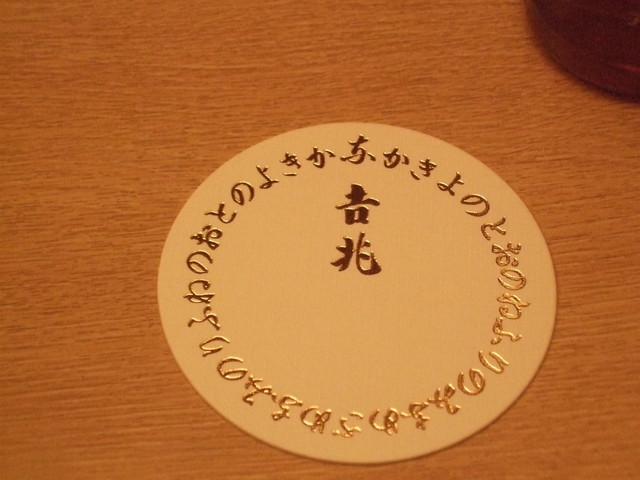 なかきよのとおのねふりのみなめさめなみのりふねのおとのよきか
吉兆